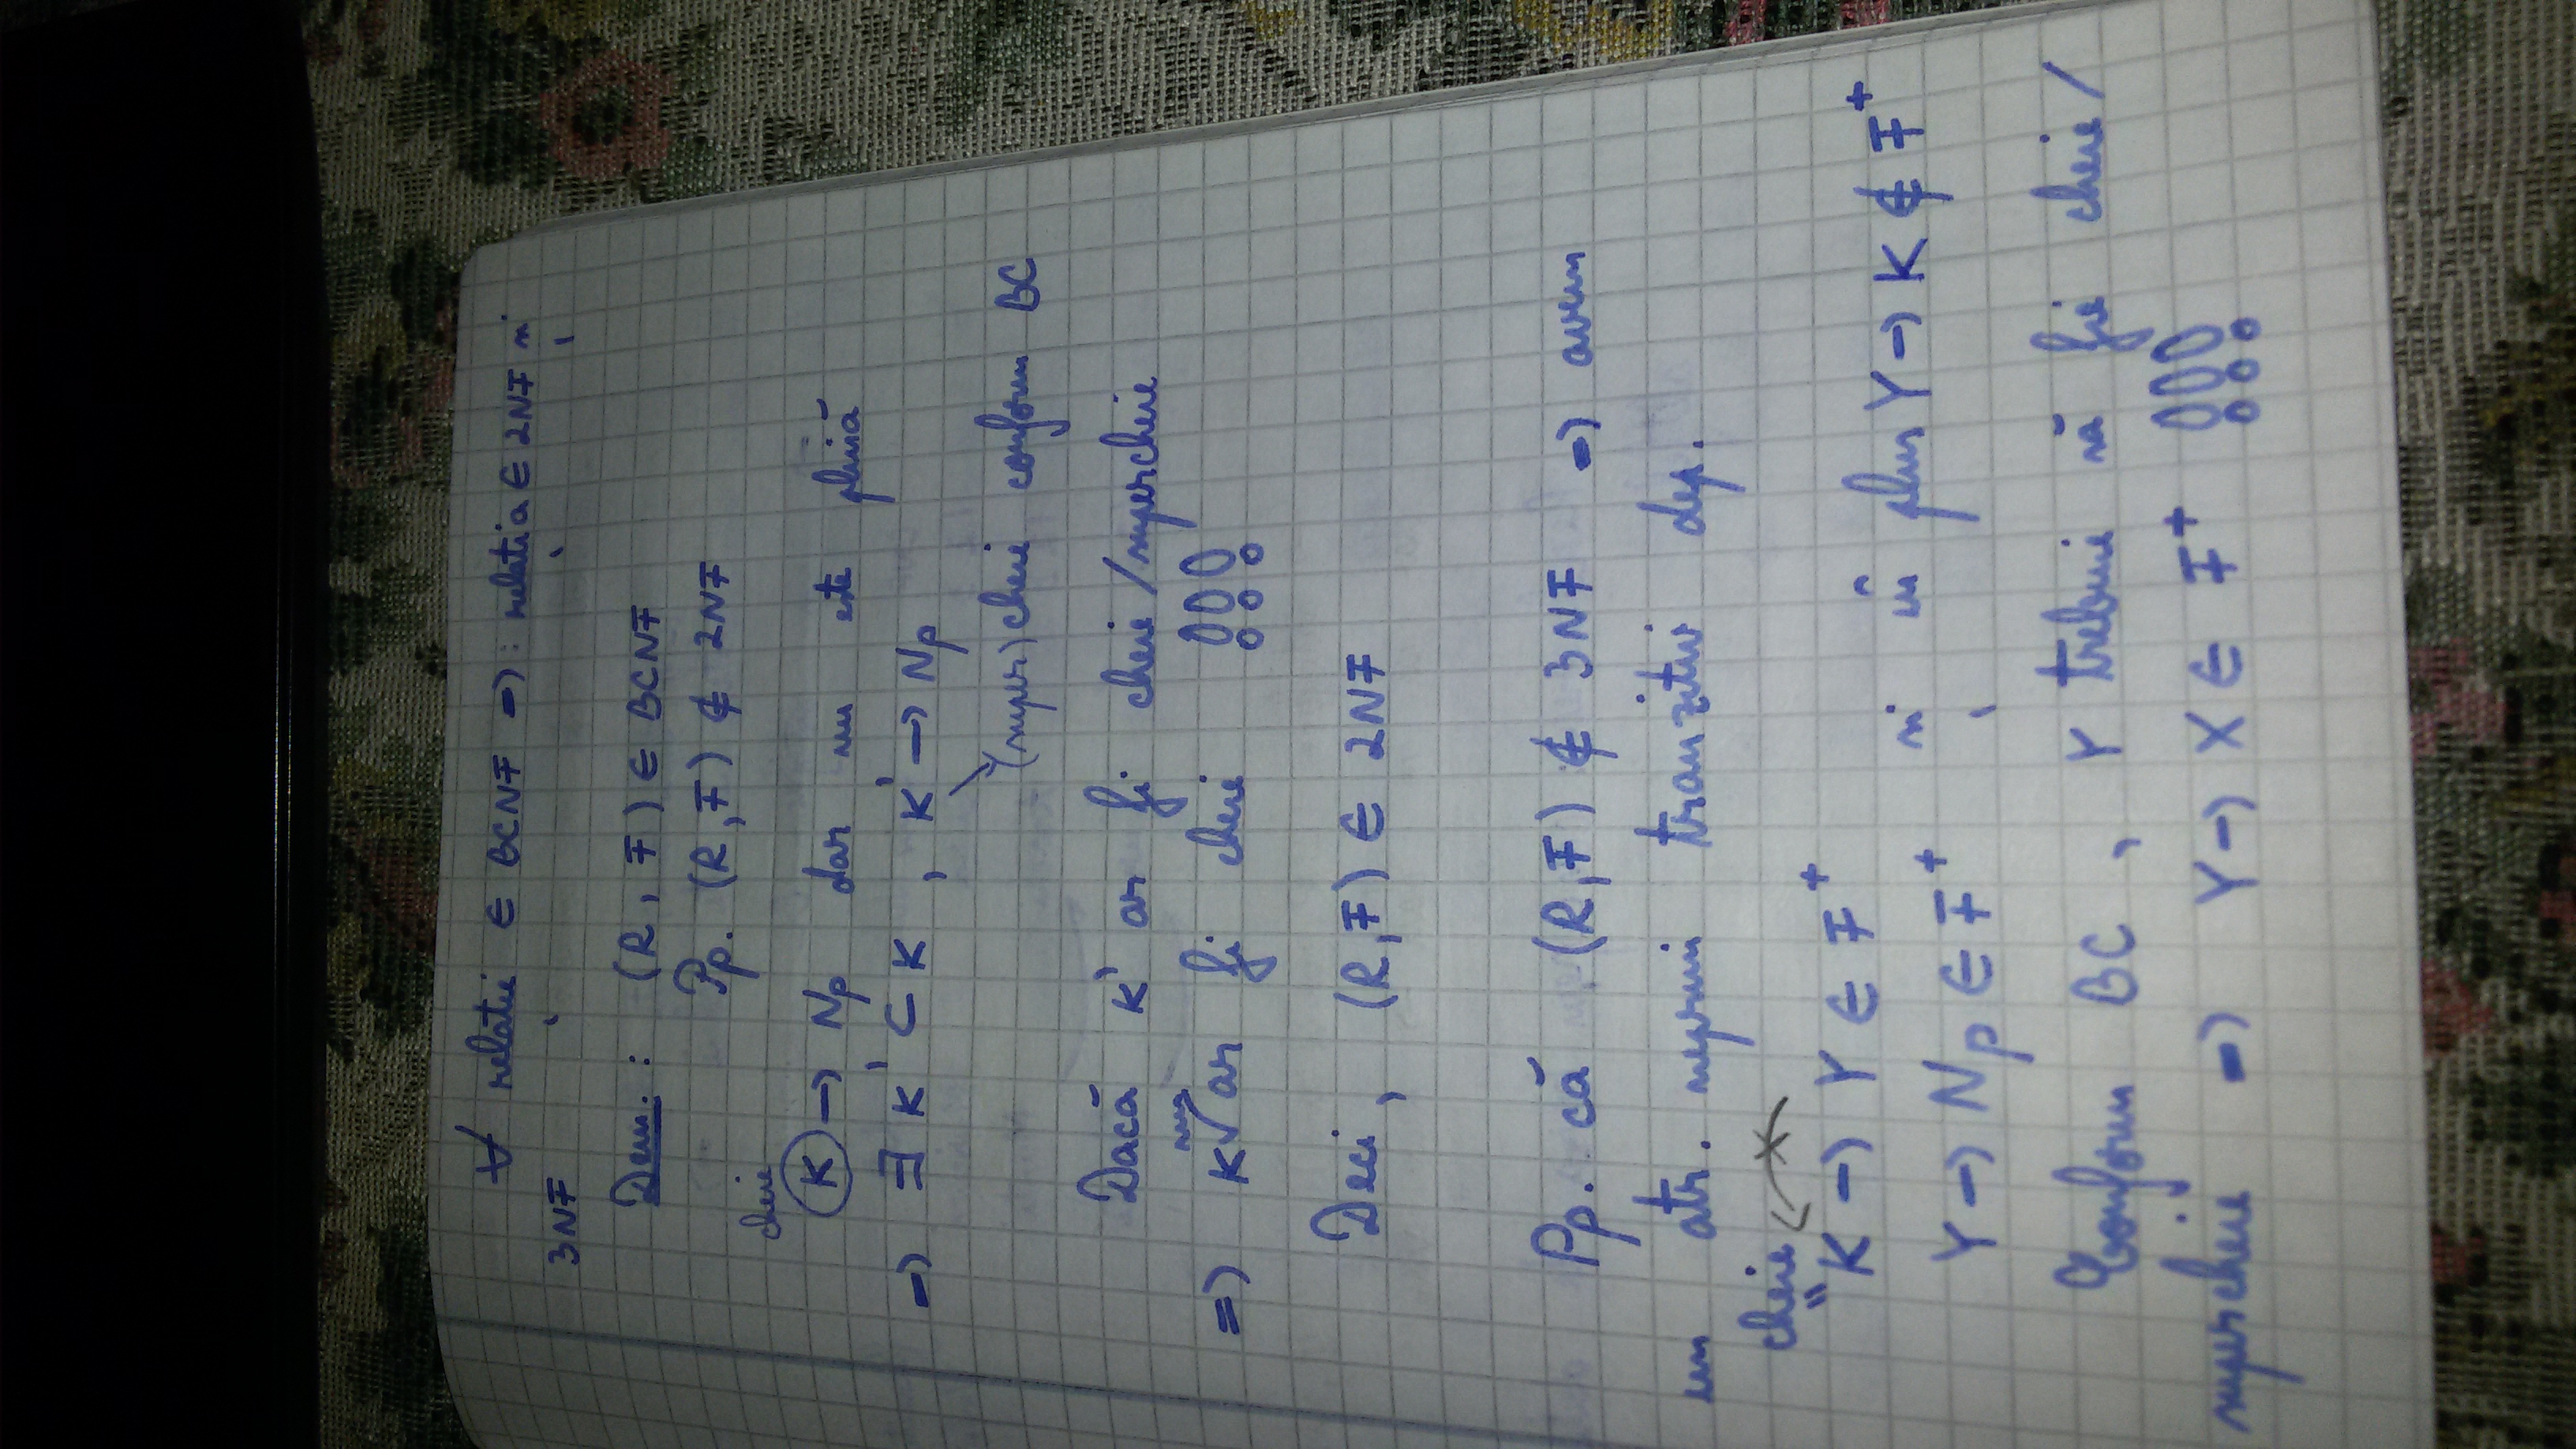 ∀ relație ∈ BCNF => : relația ∈ 2NF și
3NF
Dem. : (R, F) ∈ BCNF
Pp. (R, F) ∉ 2NF
cheie
K → Np dar nu este plină
=> ∃ K' ⊂ K , K' → Np
(super)cheie conform BC
Dacă K' ar fi cheie/supercheie
nu
=> K ar fi cheie !!!
Deci, (R,F) ∈ 2NF
Pp. că (R,F) ∉ 3NF => avem
un atr. neprim tranzitiv dep.
cheie
" K → Y ∈ F⁺
Y → Np ∈ F⁺ și în plus Y → K ∉ F⁺
Conform BC, Y trebuie să fie cheie/
supercheie => Y → X ∈ F⁺ !!!